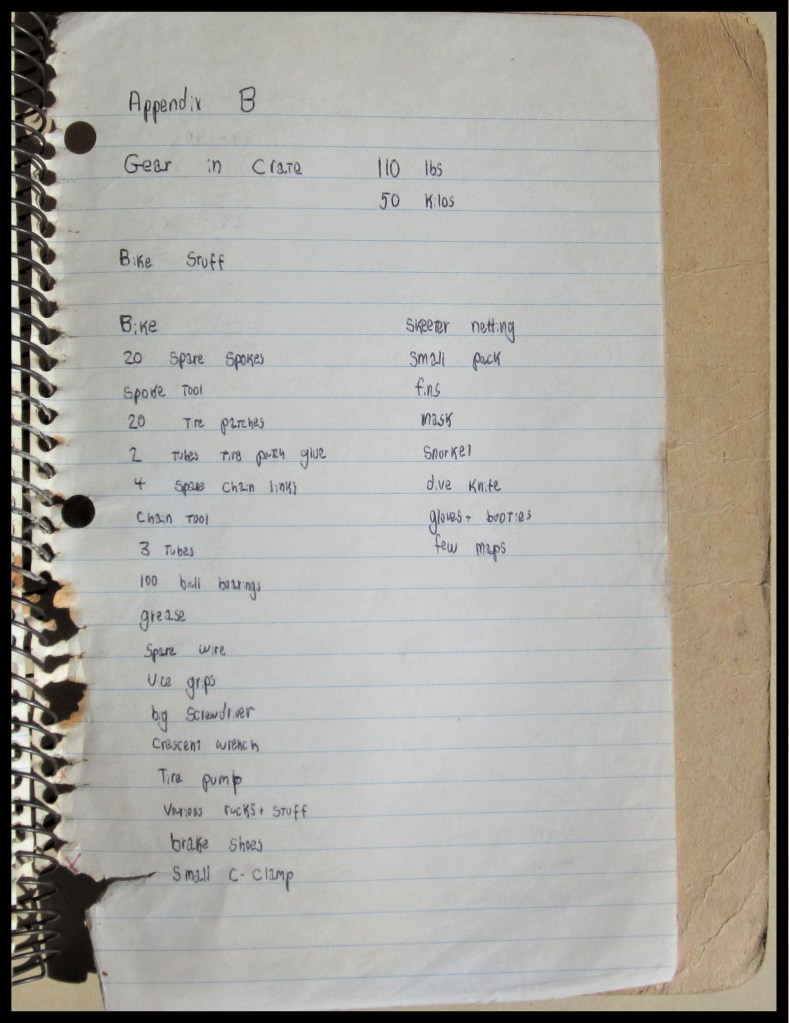 Appendix B
Gear in Crate 110 lbs
50 Kilos
Bike Stuff
Bike
20 Spare Spokes
Spoke Tool
20 Tire patches
2 Tubes Tire patch glue
4 Spare Chain links
Chain Tool
3 Tubes
100 ball bearings
grease
Spare wire
Vice grips
big Screwdriver
Crescent wrench
Tire pump
Various racks + Stuff
brake Shoes
Small C-Clamp
Skeeter netting
Small pack
fins
mask
Snorkel
dive Knife
gloves + booties
few maps